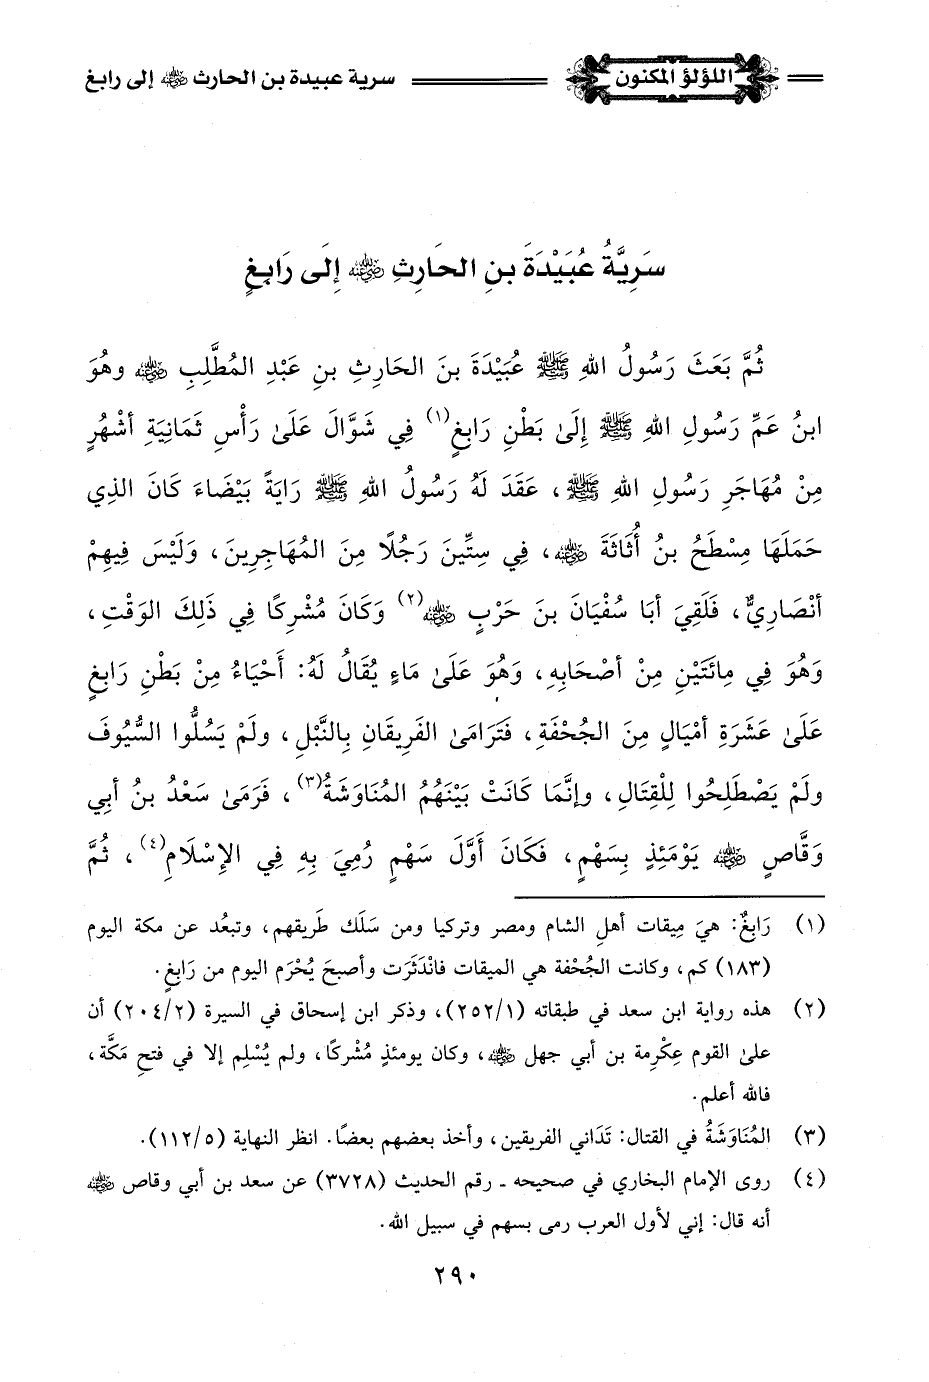 اللؤلؤ المكنون
سرية عبيدة بن الحارث رضي الله عنه إلى رابغ
سَرِيَّةُ عُبَيْدَةَ بنِ الحَارِثِ رضي الله عنه إِلَى رَابِغٍ
ثُمَّ بَعَثَ رَسُولُ اللهِ ﷺ عُبَيْدَةَ بنَ الحَارِثِ بنِ عَبْدِ المُطَّلِبِ رضي الله عنه وهُوَ
ابنُ عَمِّ رَسُولِ اللهِ ﷺ إِلَىٰ بَطْنِ رَابِغٍ(١) فِي شَوَّالَ عَلَىٰ رَأْسِ ثَمَانِيَةِ أَشْهُرٍ
مِنْ مُهَاجَرِ رَسُولِ اللهِ ﷺ، عَقَدَ لَهُ رَسُولُ اللهِ ﷺ رَايَةً بَيْضَاءَ كَانَ الذِي
حَمَلَهَا مِسْطَحُ بنُ أُثَاثَةَ رضي الله عنه، فِي سِتِّينَ رَجُلًا مِنَ المُهَاجِرِينَ، وَلَيْسَ فِيهِمْ
أَنْصَارِيٌّ، فَلَقِيَ أبَا سُفْيَانَ بنَ حَرْبٍ رضي الله عنه(٢) وَكَانَ مُشْرِكًا فِي ذَلِكَ الوَقْتِ،
وَهُوَ فِي مِائَتَيْنِ مِنْ أصْحَابِهِ، وَهُوَ عَلَىٰ مَاءٍ يُقَالُ لَهُ: أَحْيَاءُ مِنْ بَطْنِ رَابِغٍ
عَلَىٰ عَشَرَةِ أمْيَالٍ مِنَ الجُحْفَةِ، فَتَرَامَىٰ الفَرِيقَانِ بِالنَّبْلِ، ولَمْ يَسُلُّوا السُّيُوفَ
ولَمْ يَصْطَلِحُوا لِلْقِتَالِ، وإنَّمَا كَانَتْ بَيْنَهُمُ المُنَاوَشَةُ(٣)، فَرَمَىٰ سَعْدُ بنُ أبِي
وَقَّاصٍ رضي الله عنه يَوْمَئِذٍ بِسَهْمٍ، فَكَانَ أَوَّلَ سَهْمٍ رُمِيَ بِهِ فِي الإِسْلَامِ(٤)، ثُمَّ
(١) رَابِغٌ: هيَ مِيقات أهلِ الشام ومصر وتركيا ومن سَلَك طَريقهم، وتبعُد عن مكة اليوم
(١٨٣) كم، وكانت الجُحْفة هي الميقات فانْدَثَرَت وأصبحَ يُحْرَم اليوم من رَابغٍ.
(٢) هذه رواية ابن سعد في طبقاته (٢٥٢/١)، وذكر ابن إسحاق في السيرة (٢٠٤/٢) أن
علىٰ القوم عِكْرِمة بن أبي جهل رضي الله عنه، وكان يومئذٍ مُشْركًا، ولم يُسْلِم إلا في فتحِ مَكَّة،
فالله أعلم.
(٣) المُنَاوَشَةُ في القتال: تَدَاني الفريقين، وأخذ بعضهم بعضًا. انظر النهاية (١١٢/٥).
(٤) روى الإمام البخاري في صحيحه - رقم الحديث (٣٧٢٨) عن سعد بن أبي وقاص رضي الله عنه
أنه قال: إني لأول العرب رمى بسهم في سبيل الله.
٢٩٠